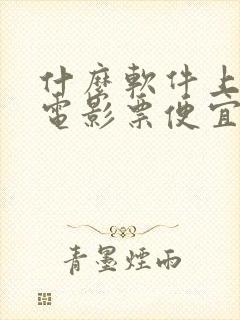 什麼軟件上
電影票便宜
青墨煙雨